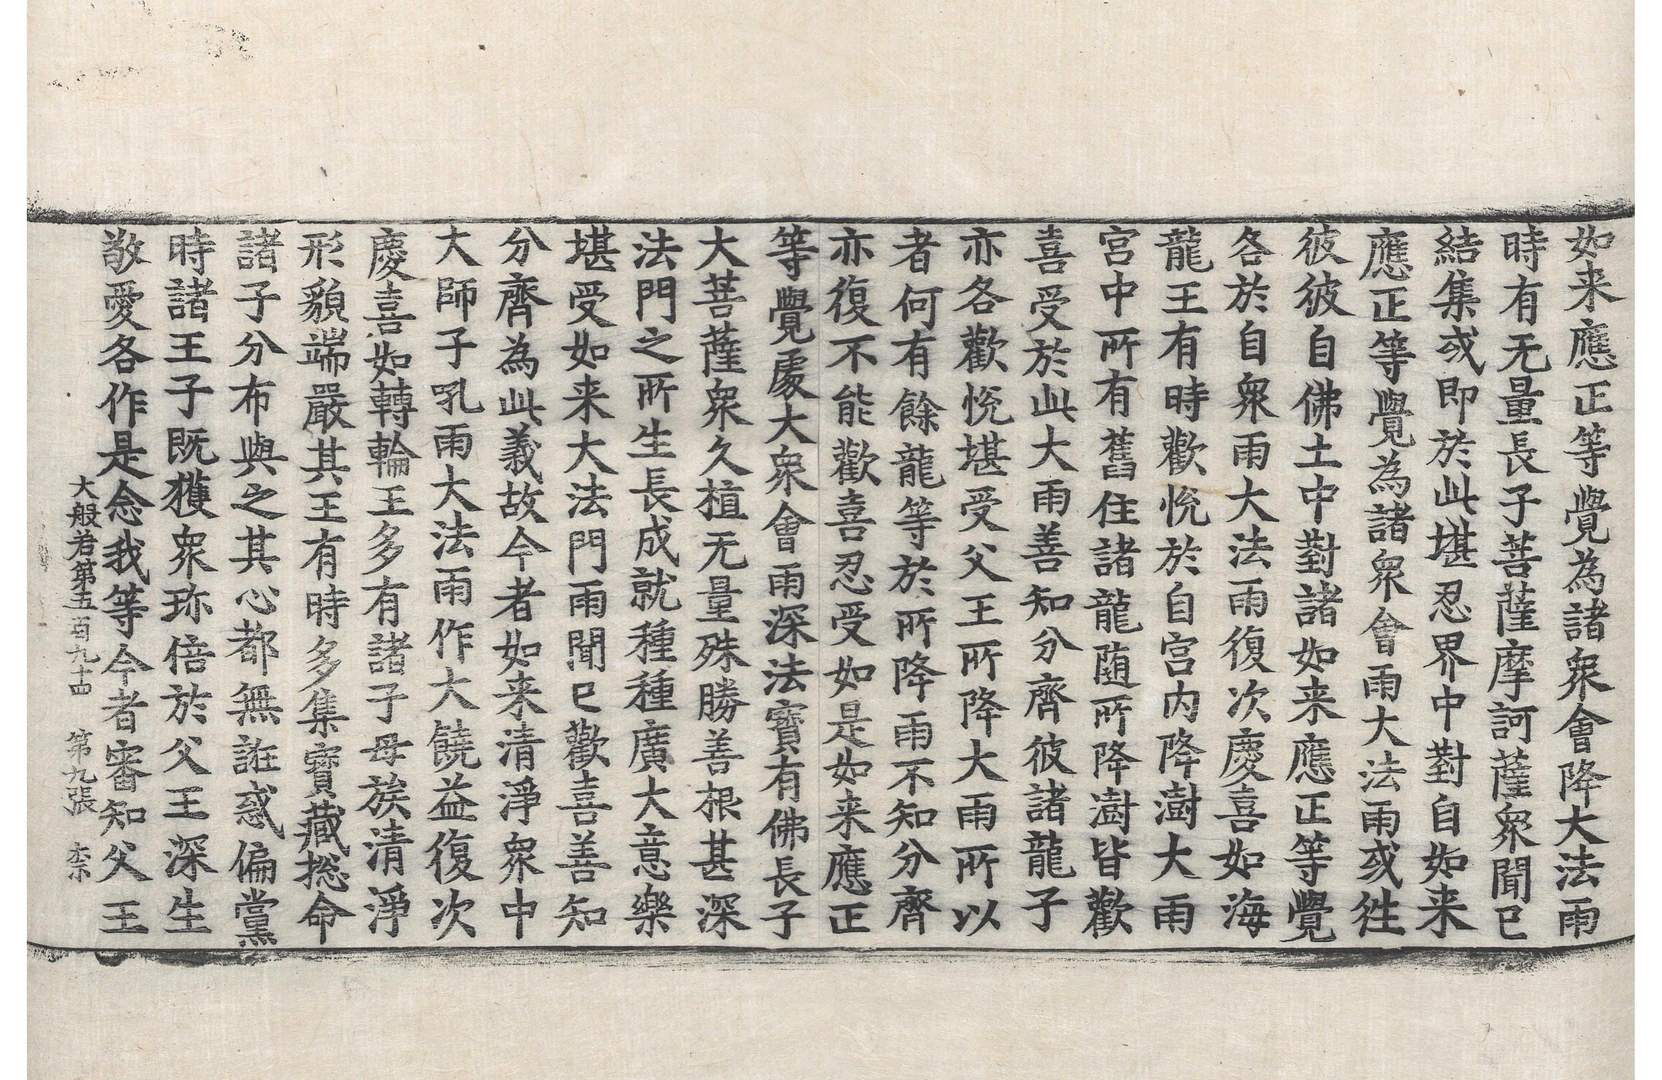 如来應正等覺為諸衆會降大法雨
時有无量長子菩薩摩訶薩衆聞已
結集或即於此堪忍界中對自如来
應正等覺為諸衆會雨大法雨或徃
彼彼自佛土中對諸如来應正等覺
各於自衆雨大法雨復次慶喜如海
龍王有時歡悅於自宮内降澍大雨
宮中所有舊住諸龍随所降澍皆歡
喜受於此大雨善知分齊彼諸龍子
亦各歡悅堪受父王所降大雨所以
者何有餘龍等於所降雨不知分齊
亦復不能歡喜忍受如是如来應正
等覺處大衆會雨深法寶有佛長子
大菩薩衆久植无量殊勝善根甚深
法門之所生長成就種種廣大意樂
堪受如来大法門雨聞已歡喜善知
分齊為此義故今者如来清淨衆中
大師子吼雨大法雨作大饒益復次
慶喜如轉輪王多有諸子母族清淨
形貌端嚴其王有時多集寶藏捴命
諸子分布與之其心都無誑惑偏黨
時諸王子既獲衆珎倍於父王深生
敬愛各作是念我等今者審知父王
大般若第五百九十四　第九張　李